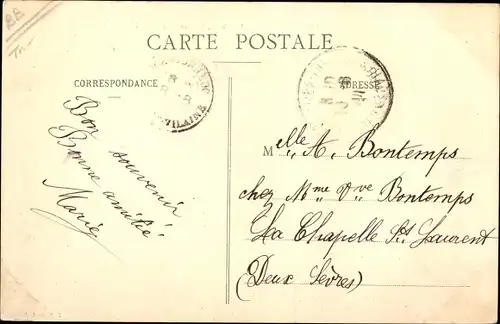 CARTE POSTALE
CORRESPONDANCE
ADRESSE
Bon souvenir
Bonne amitié
Marie
Melle A. Bontemps
chez Mme Vve Bontemps
La Chapelle St Laurent
(Deux Sèvres)
VILAINE